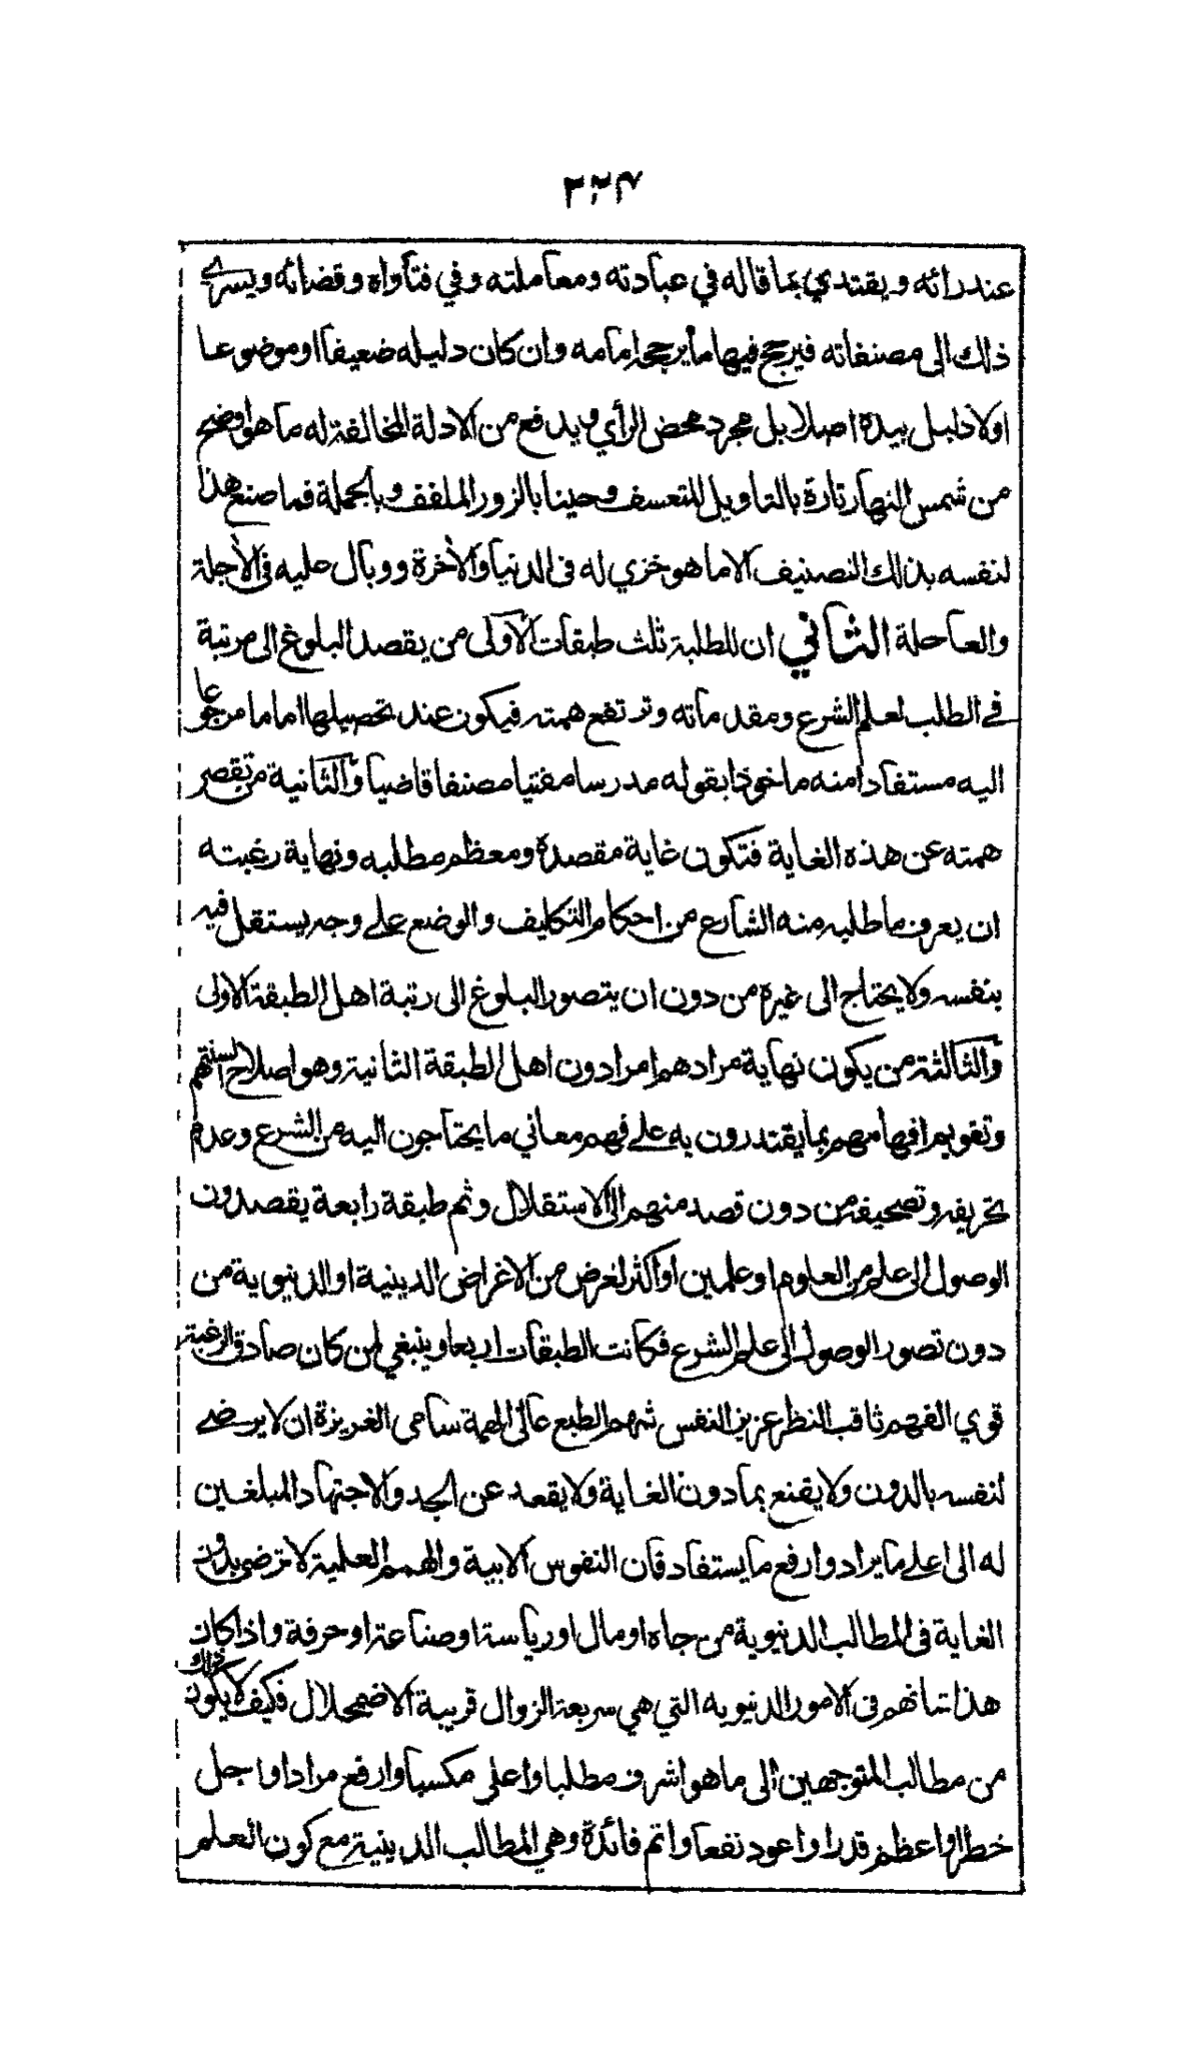 ٣٢٤
عند رائه ويقتدي بما قاله في عبادته ومعاملته وفي فتاواه وقضائه ويسرى
ذلك الى مصنفاته فيرجح فيها ما يرجحه امامه وان كان دليله ضعيفا او موضوعا
اولا دليل بيده اصلا بل مجرد محض الرأي ويدفع من الادلة المخالفة له ما هو اوضح
من شمس النهار تارة بالتاويل المتعسف وحينا بالزور الملفف وبالجملة فما صنع هذا
لنفسه بذلك التصنيف الا ما هو خزي له فى الدنيا والأخرة ووبال عليه فى الأجلة
والعاجلة الثاني ان للطلبة ثلث طبقات الأولى من يقصد البلوغ الى مرتبة
في الطلب لعلم الشرع ومقدماته وترتفع همته فيكون عند تحصيلها اماما مرجوعا
اليه مستفادا منه ماخوذا بقوله مدرسا مفتيا مصنفا قاضيا والثانية من تقصر
همته عن هذه الغاية فتكون غاية مقصده ومعظم مطلبه ونهاية رغبته
ان يعرف ما طلبه منه الشارع من احكام التكليف والوضع على وجه يستقل فيه
بنفسه ولا يحتاج الى غيره من دون ان يتصور البلوغ الى رتبة اهل الطبقة الاولى
والثالثة من يكون نهاية مرادهم امرا دون اهل الطبقة الثانية وهو اصلاح السنتهم
وتقويم افهامهم بما يقتدرون به على فهم معاني ما يحتاجون اليه من الشرع وعدم
تحريفه وتصحيفه من دون قصد منهم الى الاستقلال وثم طبقة رابعة يقصدون
الوصول الى علم من العلوم او علمين او اكثر لغرض من الاغراض الدينية او الدنيوية من
دون تصور الوصول الى علم الشرع فكانت الطبقات اربعا وينبغي لمن كان صادق الرغبة
قوي الفهم ثاقب النظر عزيز النفس شهم الطبع عالى الهمة سامى الغريزة ان لا يرضى
لنفسه بالدون ولا يقنع بما دون الغاية ولا يقعد عن الجد والاجتهاد المبلغين
له الى اعلى ما يراد وارفع ما يستفاد فان النفوس الابية والهمم العلية لا ترضى بدون
الغاية فى المطالب الدنيوية من جاه او مال او رياسة او صناعة او حرفة واذا كان
هذا شانهم فى الامور الدنيويه التي هي سريعة الزوال قريبة الاضمحلال فكيف لا يكون ذلك
من مطالب المتوجهين الى ما هو اشرف مطلبا واعلى مكسبا وارفع مرادا واجل
خطرا واعظم قدرا واعود نفعا واتم فائدة وهي المطالب الدينية مع كون العلم